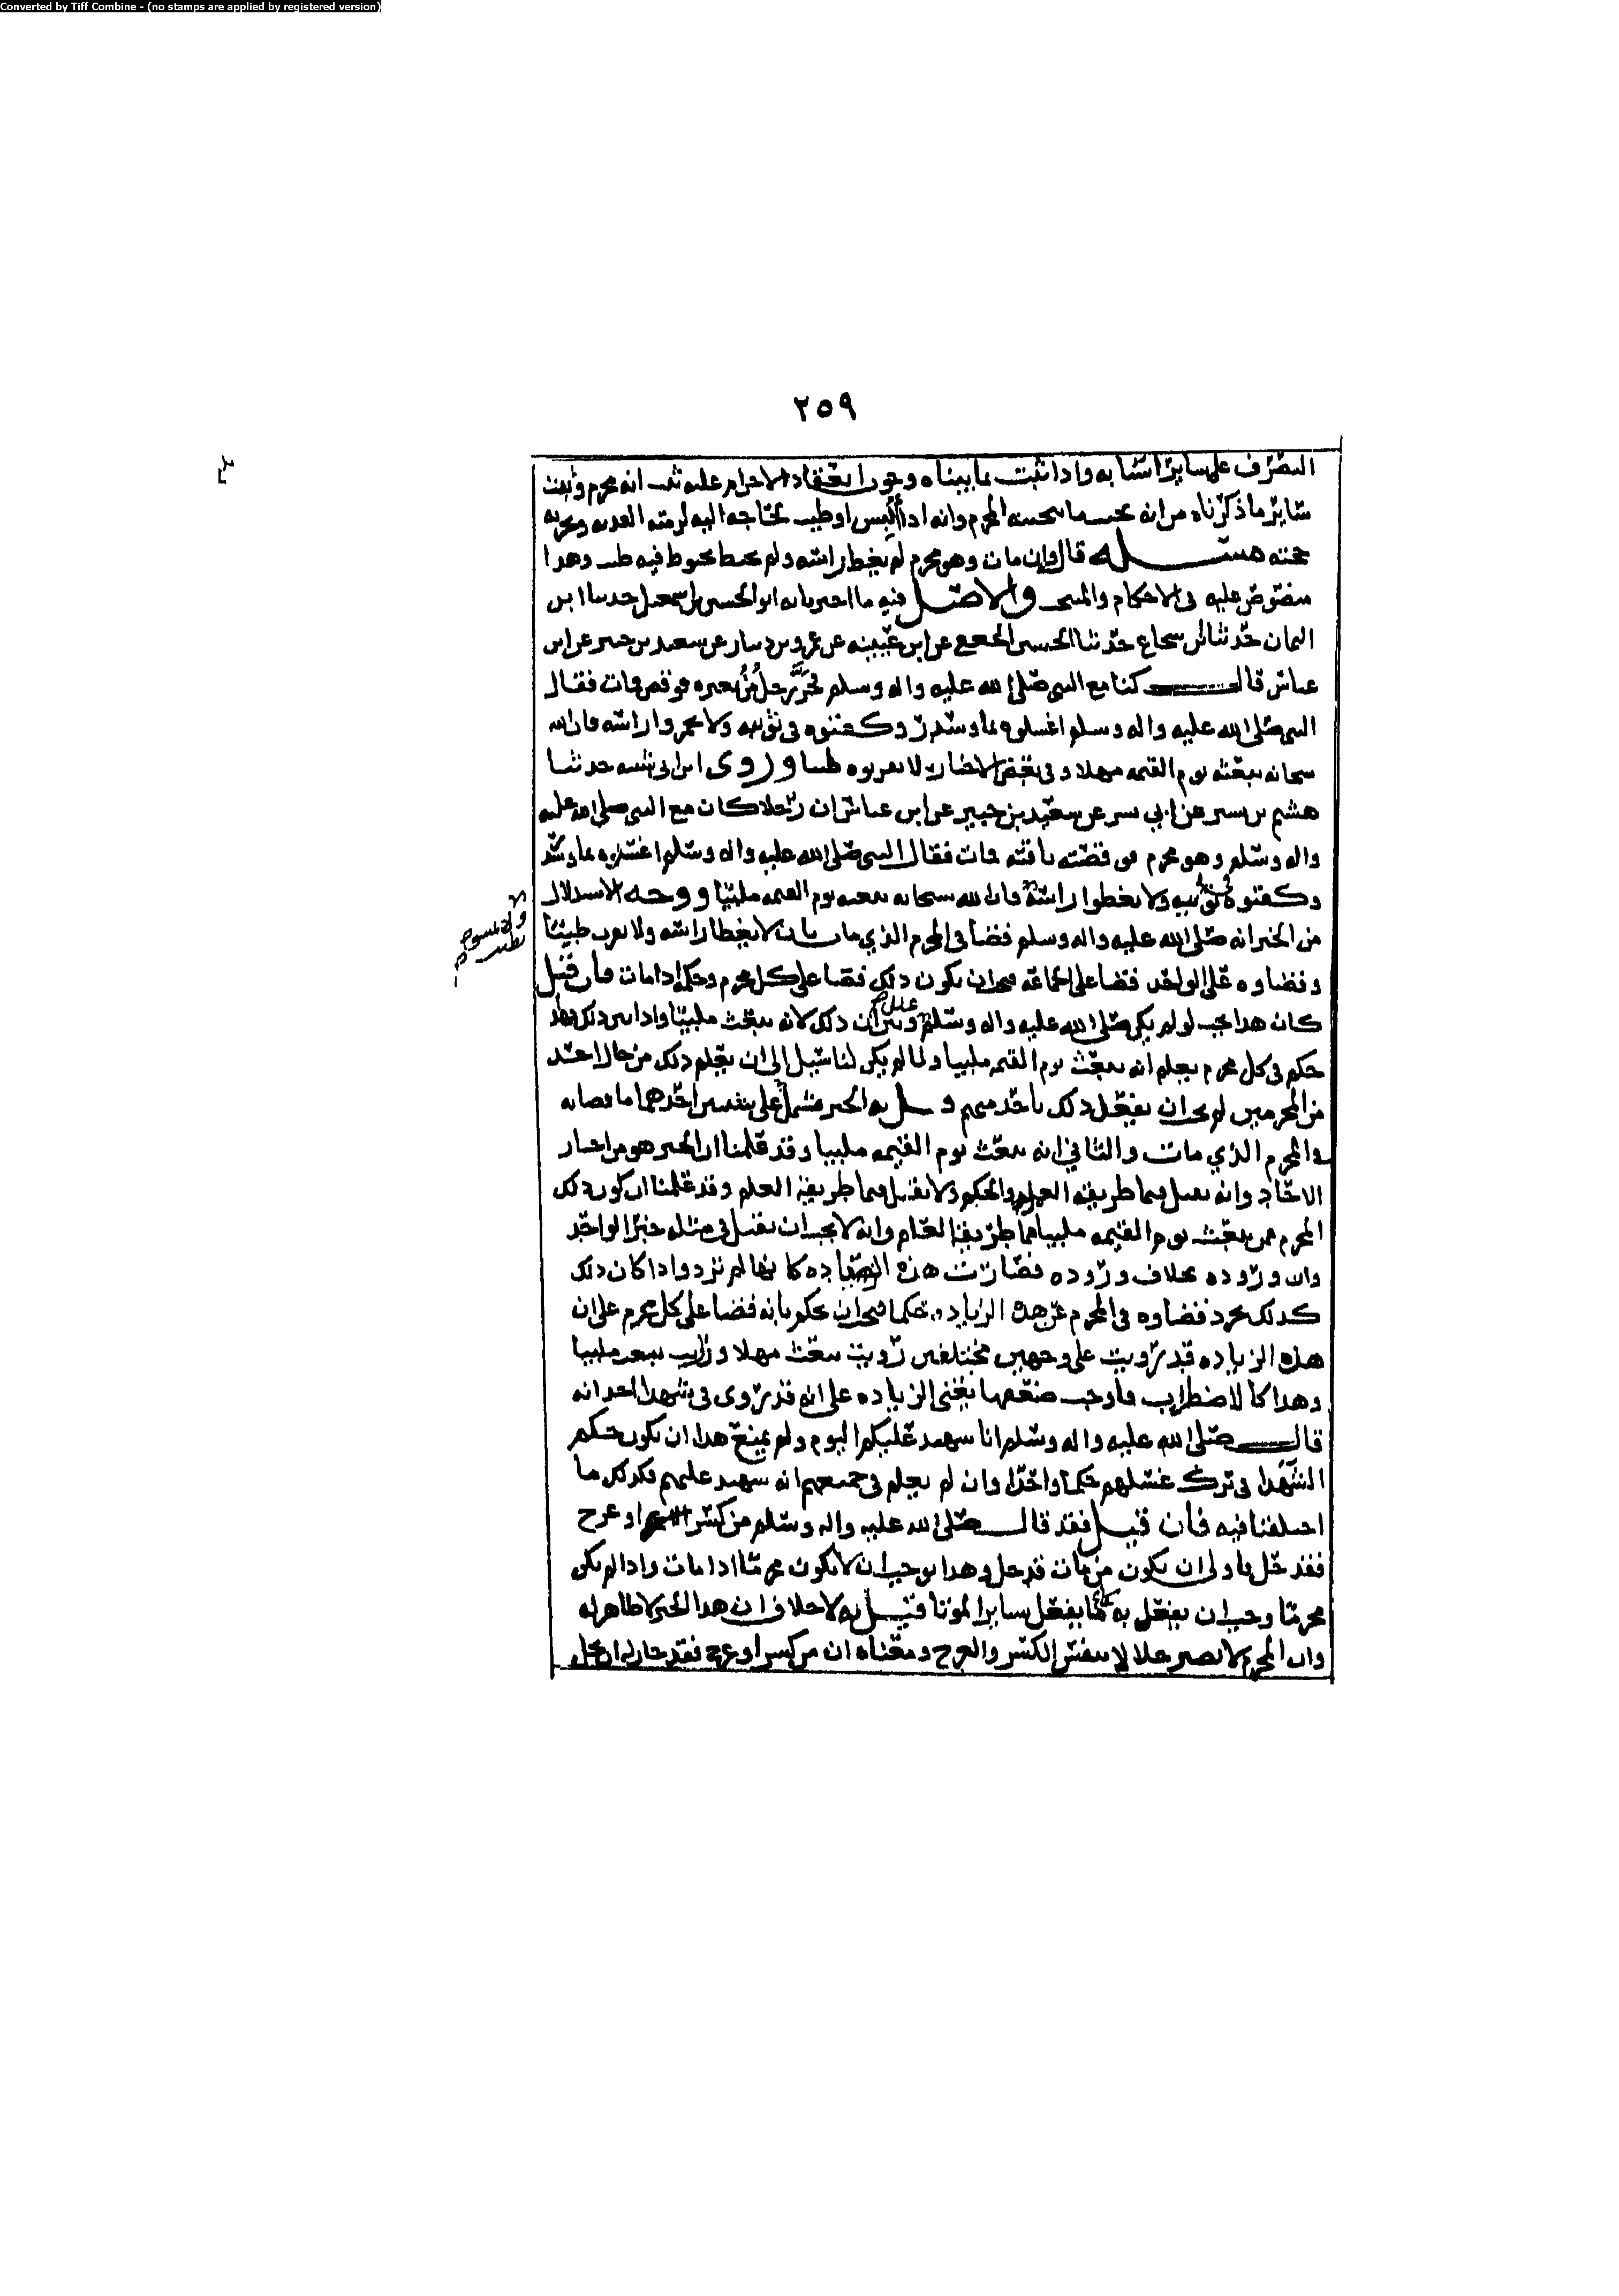 Converted by Tiff Combine - (no stamps are applied by registered version)
٢٥٩
التصرف على سائر اسبابه واذا ثبت بما بيناه وجوب انعقاد الاحرام عليه ثبت انه محرم وثبت
سائر ما ذكرناه من انه يجنب ما يجنبه المحرم وانه اذا أُلبس او طيب لحاجه اليه لزمته الفديه
مسئله قال وان مات وهو محرم لم يغط راسه ولم يحنط بحنوط فيه طيب وهذا
منصوص عليه في الاحكام والمنتخب والاصل فيه ما اخبرنا به ابو الحسين بن اسمعيل حدثنا ابن
اليمان حدثنا ابن شجاع حدثنا الحسين الجعفي عن ابن عيينه عن عمرو بن دينار عن سعيد بن جبير عن ابن
عباس قال كنا مع النبي صلى الله عليه واله وسلم فخرّ رجل من بعيره فوقص فمات فقال
النبي صلى الله عليه واله وسلم اغسلوه بماء وسدر وكفنوه في ثوبيه ولا تخمروا راسه فان الله
سبحانه يبعثه يوم القيمه مهلا وفي بعض الاخبار لا تقربوه طيبا وروى ابن ابي شيبه حدثنا
هشيم بن بشير عن ابي بشر عن سعيد بن جبير عن ابن عباس ان رجلا كان مع النبي صلى الله عليه
واله وسلم وهو محرم فوقصته ناقته فمات فقال النبي صلى الله عليه واله وسلم اغسلوه بماء وسدر
وكفنوه في ثوبيه ولا تغطوا راسه فان الله سبحانه يبعثه يوم القيمه ملبيا ووجه الاستدلال
ولا تمسوه بطيب
من الخبر انه صلى الله عليه واله وسلم قضا في المحرم الذي مات بان لا يغطا راسه ولا يقرب طيبا
وقضاوه على الواحد قضا على الجماعه فيجب ان يكون ذلك قضا على كل محرم وحكمه اذا مات فان قيل
كان هذا يجب لو لم يكن صلى الله عليه واله وسلم علل وبين ان ذلك لانه يبعث ملبيا واذا بين ذلك فهذا
حكم في كل محرم يعلم انه يبعث يوم القيمه ملبيا ولما لم يكن لنا سبيل الى ان يعلم ذلك من حال احد
من المحرمين لم يجز ان يفعل ذلك باحد منهم قيل له الخبر مشتمل على شيئين احدهما ما قضا به
في المحرم الذي مات والثاني انه يبعث يوم القيمه ملبيا وقد علمنا ان الخبر هو من اخبار
الاحاد وانه يقبل فيما طريقه العمل والحكم ولا يقبل فيما طريقه العلم وقد علمنا ان كون ذلك
المحرم ممن يبعث يوم القيمه ملبيا مما طريقه العلم وانه لا يجب ان يقبل في مثله خبر الواحد
وان وروده بخلاف وروده فصارت هذه الزياده كانها لم ترد واذا كان ذلك
كذلك تجرد قضاوه في المحرم عن هذه الزياده حكما فيجب ان يحكم بانه قضا على كل محرم على ان
هذه الزياده قد رويت على وجهين مختلفين رويت يبعث مهلا ورويت يبعث ملبيا
وهذا كالاضطراب فاوجب ضعفها يعني الزياده على انه قد روى في شهدا احد انه
قال صلى الله عليه واله وسلم انا شهيد عليكم اليوم ولم يمنع هذا ان يكون حكم
الشهدا في ترك غسلهم حكما واحدا وان لم يعلم في جميعهم انه شهيد عليهم فكذلك ما
اختلفنا فيه فان قيل فقد قال صلى الله عليه واله وسلم من كسر او عرج
فقد حل فاولى ان يكون من مات قد حل وهذا يوجب ان لا يكون محرما اذا مات واذا لم يكن
محرما وجب ان يفعل به ما يفعل بساير الموتا قيل له لا خلاف ان هذا الخبر لا ظاهر له
وان المحرم لا يصير حلالا بنفس الكسر والعرج ومعناه ان من كسر او عرج فقد جاز له ان يحل